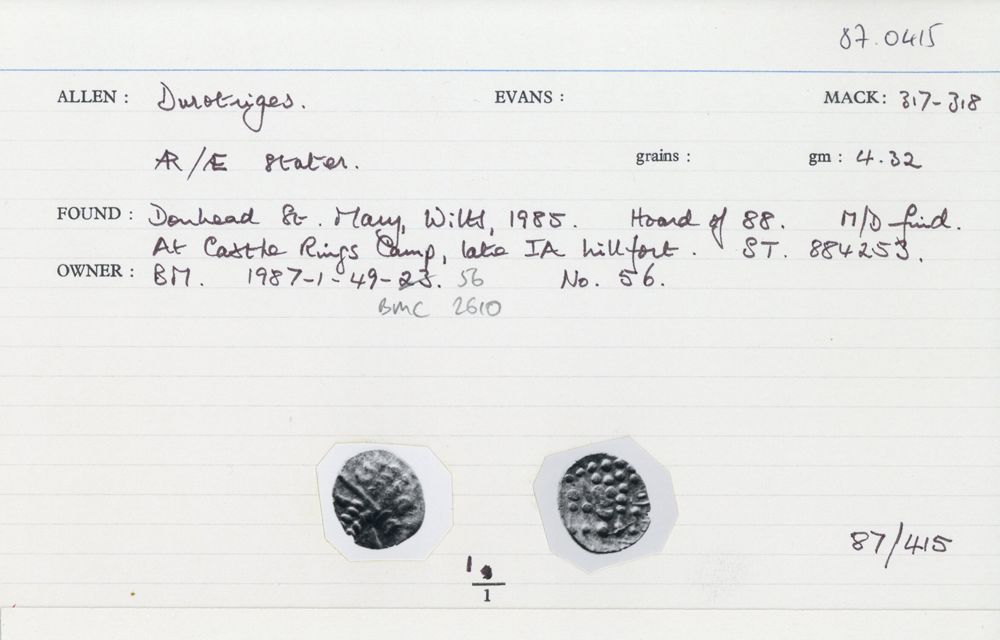 87.0415
ALLEN : Durotriges. EVANS : MACK: 317-318
AR/Æ stater. grains : gm : 4.32
FOUND : Donhead St. Mary, Wilts, 1985. Hoard of 88. M/D find.
At Castle Rings Camp, late IA hillfort. ST. 884253.
OWNER : BM. 1987-1-49-23. 56 No. 56.
BMC 2610
1
1
87/415